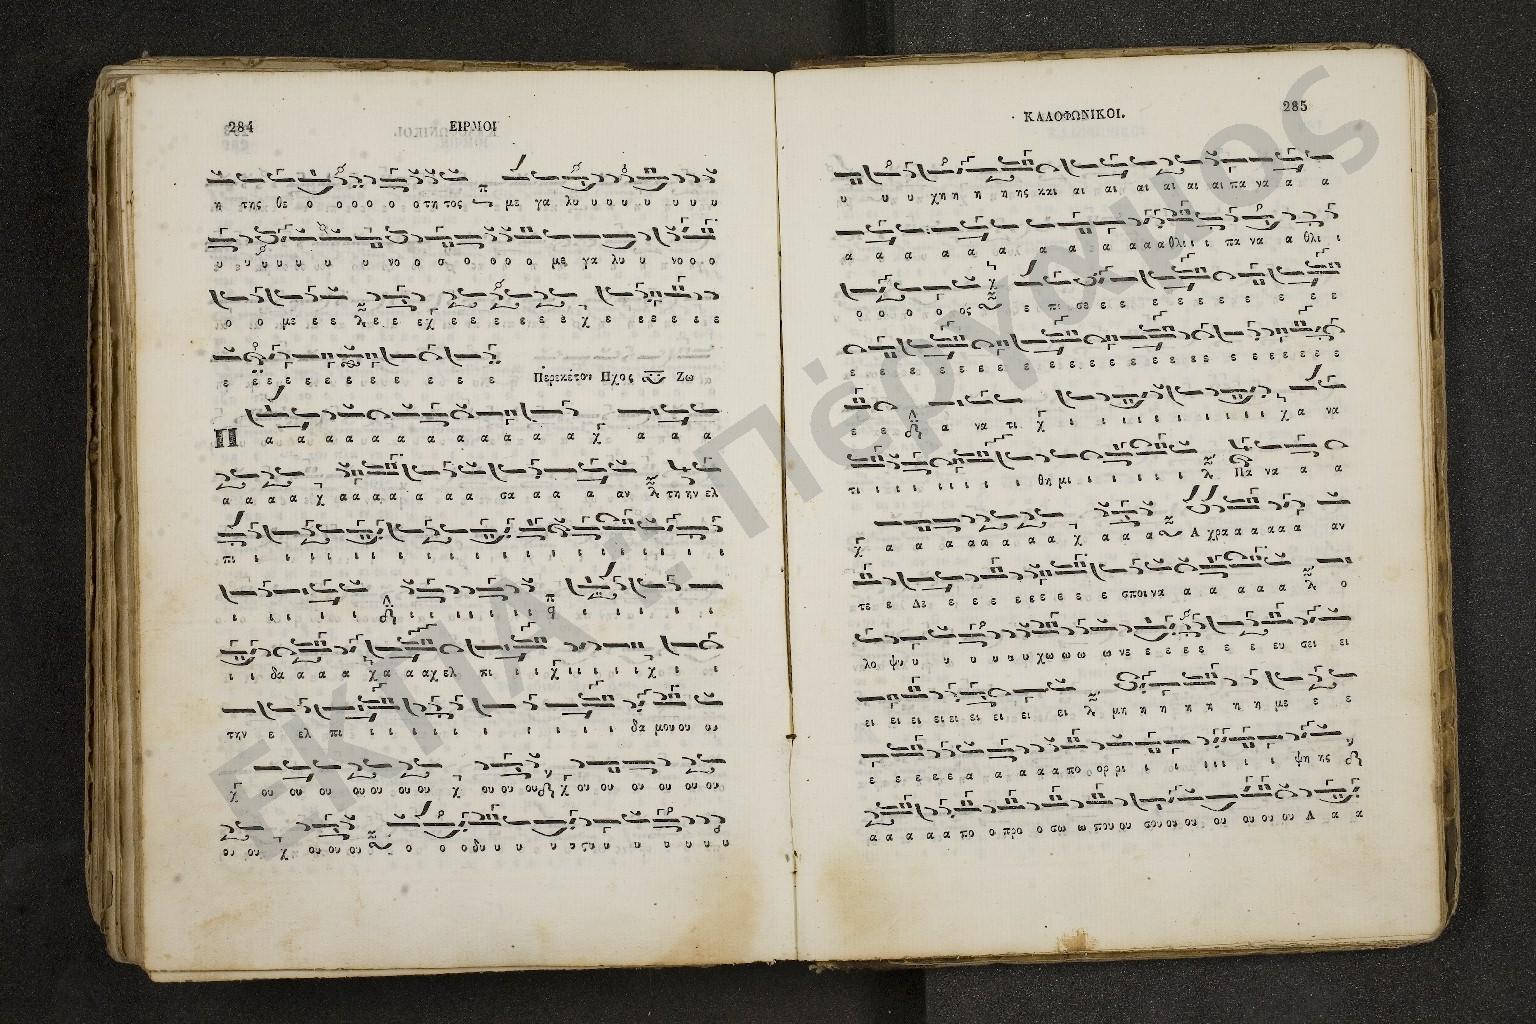 284
ΕΙΡΜΟΙ
η της θε ο ο ο ο ο ο τη τος με γα λυ υ υ υ υ υ υ υ
υ υ υ υ υ υ υ νο ο ο ο ο ρ ο με γα λυ υ νο ο ο
ο ο με ε ε ε ε εχ ε ε ε ε ε ε ε χ ε ε ε ε ε ε
ε ε ε ε ε ε ε ε ε ε Περεκέτου Ηχος Ζω
Π α α α α α α α α α α α α α χ α α α
α α α α χ α α α α α α α σα α α α αν τη ην ελ
πι ι ι ι ι ι ι ι ι ι ι ι ι ι ι ι ι ι ι ι
ι ι ι ι ι ι ι ι ι ι ι ι ι ι ι ι ι ι
ι ι δα α α α χα α αχ ελ πι ι ι χι ι ι ι ι χ ι ι
την ε ελ πι ι ι ι ι ι ι ι ι ι ι δα μου ου ου
χ ου ου ου ου ου ου ου χ ου ου ου χ ου ου ου ου ου ου
ου ου χ ου ου ου ο ο ο δυ υ υ υ υ υ υ υ υ υ υ υ
285
ΚΑΛΟΦΩΝΙΚΟΙ.
υ υ υ χη η η η ης και αι αι αι αι αι αι πα να α α
α α α α α α α α α α α α θλι ι ι πα να α θλι ι
ο ο ο ο ο ος ε πι σε ε ε ε ε ε ε ε ε ε
ε ε ε ε ε ε ε ε ε ε ε ε ε ε ε ε ε ε ε ε ε
ε ε α να τι χ ι ι ι ι ι ι ι ι ι ι ι χα να
τι ι ι ι ι ι ι ι θη μι ι ι ι ι ι ι Πα να α α
χ α α α α α α α α χ α α α Α χρα α α α α α αν
τε ε Δε ε ε ε ε ε ε ε ε σποι να α α α α α ο
λο ψυ υ υ υ υ υ υ χω ω ω ω νε ε ε ε ε ε ε ευ σει ει
ει ει ει ει ει ει ει ει ει μη η η η η η η με ε ε
ε ε ε ε ε α α α α α πο ορ ρι ι ι ι ι ι ι ι ψη ης
α α α α α πο ο προ ο σω ω που ου σου ου ου ου ου ου ου Α α α
ΕΚΠΑ - Πέργαμος